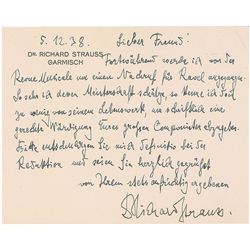 5.12.38.
Lieber Freund!
DR. RICHARD STRAUSS
GARMISCH
Fortwährend werde ich von der
Revue Musicale um einen Nachruf für Ravel angegangen.
So sehr ich dessen Meisterschaft schätze, so kenne ich doch
zu wenig von seinem Lebenswerk, um schriftlich eine
gerechte Würdigung Eures großen Componisten abzugeben.
Bitte entschuldigen Sie mich definitiv bei der
Redaktion und seien Sie herzlich gegrüßt
von Ihrem stets aufrichtig ergebenen
DrRichardStrauss.